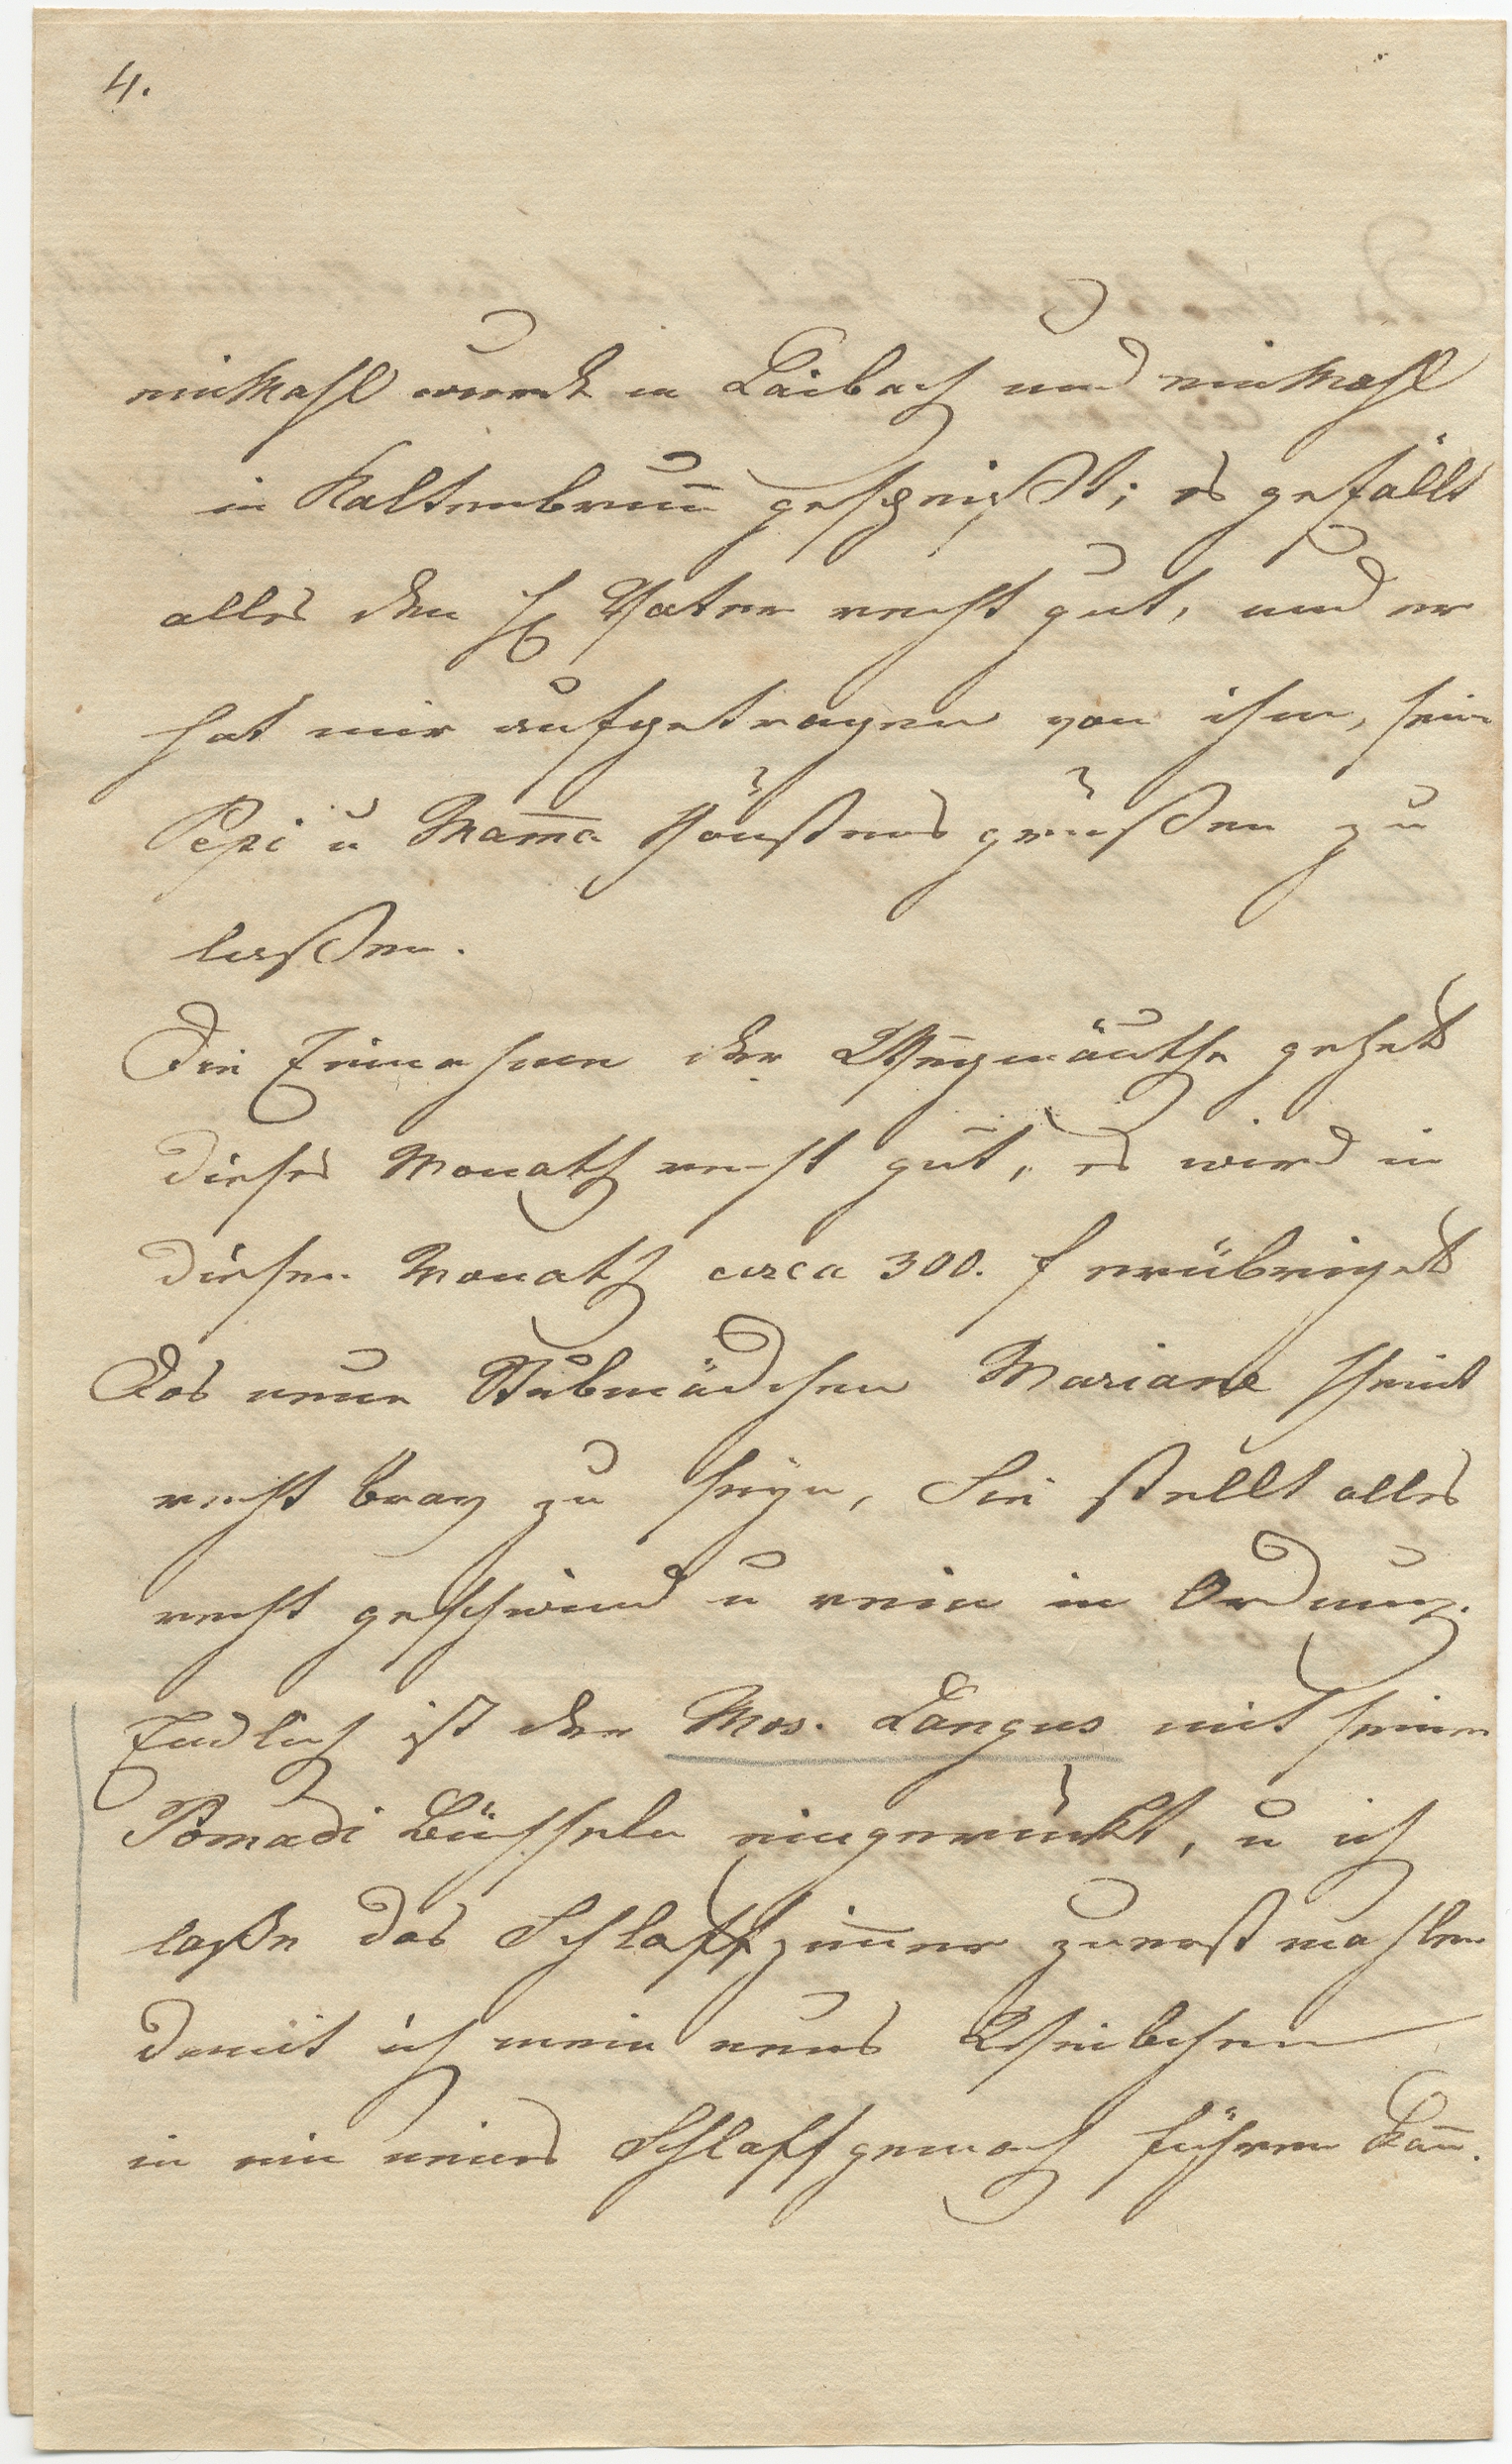 4.
einmahl wurde in Laibach und einmahl
in Kaltenbrun̄ gespeißt; es gefällt
alles den H. Vater recht gut, und er
hat mir aufgetragen von ihm, sein
Pepi u Mam̄a schönstens grüßen zu
laßen.
Die Einnahme der Wegmäuthe gehet
dieses Monath recht gut, es wird in
diesen Monath circa 300. f erübriget
Das neue Stubmädchen Mariane scheint
recht brav zu seyn, Sie stellt alles
recht geschwind u rein in Ordnung.
Endlich ist der Mos. Langus mit seinen
Pomadi Büchseln eingerückt, u ich
laße das Schlaffzim̄er zuerst mahlen
damit ich mein neues Weibchen
in ein neues Schlaffgemach führen kan̄.